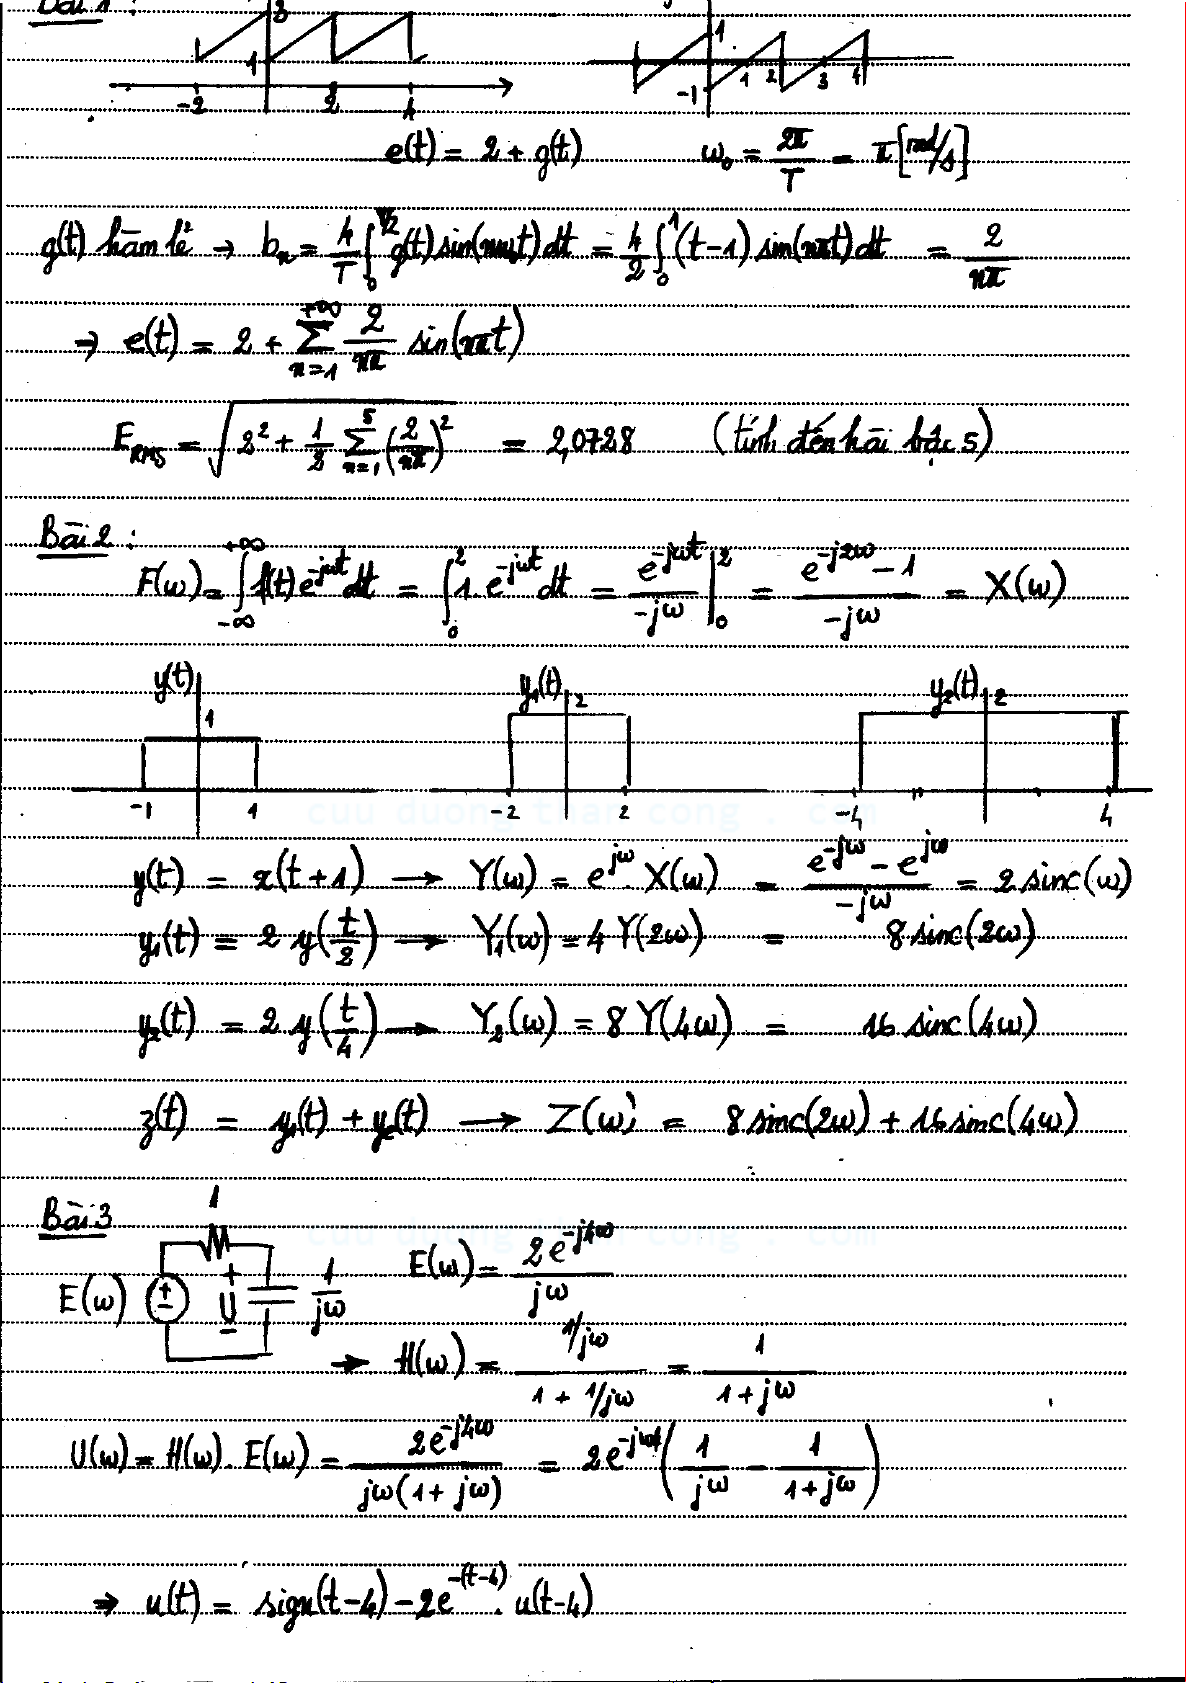 Bài 1 :
3
1
-2 2 4
1
-1 1 2 3 4
e(t) = 2 + g(t) ω₀ = 2π/T = π [rad/s]
g(t) hàm lẻ → bₙ = 4/T ∫₀^(T/2) g(t) sin(nω₀t) dt = 4/2 ∫₀^1 (t-1) sin(nπt) dt = 2/nπ
→ e(t) = 2 + Σ_(n=1)^(+∞) 2/nπ sin(nπt)
E_RMS = √(2² + 1/2 Σ_(n=1)^5 (2/nπ)²) = 2,0728 (tính đến hài bậc 5)
Bài 2 :
F(ω) = ∫_(-∞)^(+∞) f(t) e^(-jωt) dt = ∫₀^2 1. e^(-jωt) dt = e^(-jωt)/-jω |₀^2 = (e^(-j2ω) - 1)/-jω = X(ω)
y(t) y₁(t) 2 y₂(t) 2
1
-1 1 -2 2 -4 4
cuu duong than cong . com
y(t) = x(t+1) → Y(ω) = e^(jω). X(ω) = (e^(-jω) - e^(jω))/-jω = 2 sinc(ω)
y₁(t) = 2 y(t/2) → Y₁(ω) = 4 Y(2ω) = 8 sinc(2ω)
y₂(t) = 2 y(t/4) → Y₂(ω) = 8 Y(4ω) = 16 sinc(4ω)
z(t) = y₁(t) + y₂(t) → Z(ω) = 8 sinc(2ω) + 16 sinc(4ω)
Bài 3
1
cuu duong than cong . com
E(ω) + - + U - 1/jω E(ω) = 2e^(-j4ω)/jω
→ H(ω) = (1/jω)/(1 + 1/jω) = 1/(1 + jω)
U(ω) = H(ω). E(ω) = 2e^(-j4ω)/(jω(1 + jω)) = 2e^(-jω4) (1/jω - 1/(1+jω))
⇒ u(t) = sign(t-4) - 2e^(-(t-4)). u(t-4)